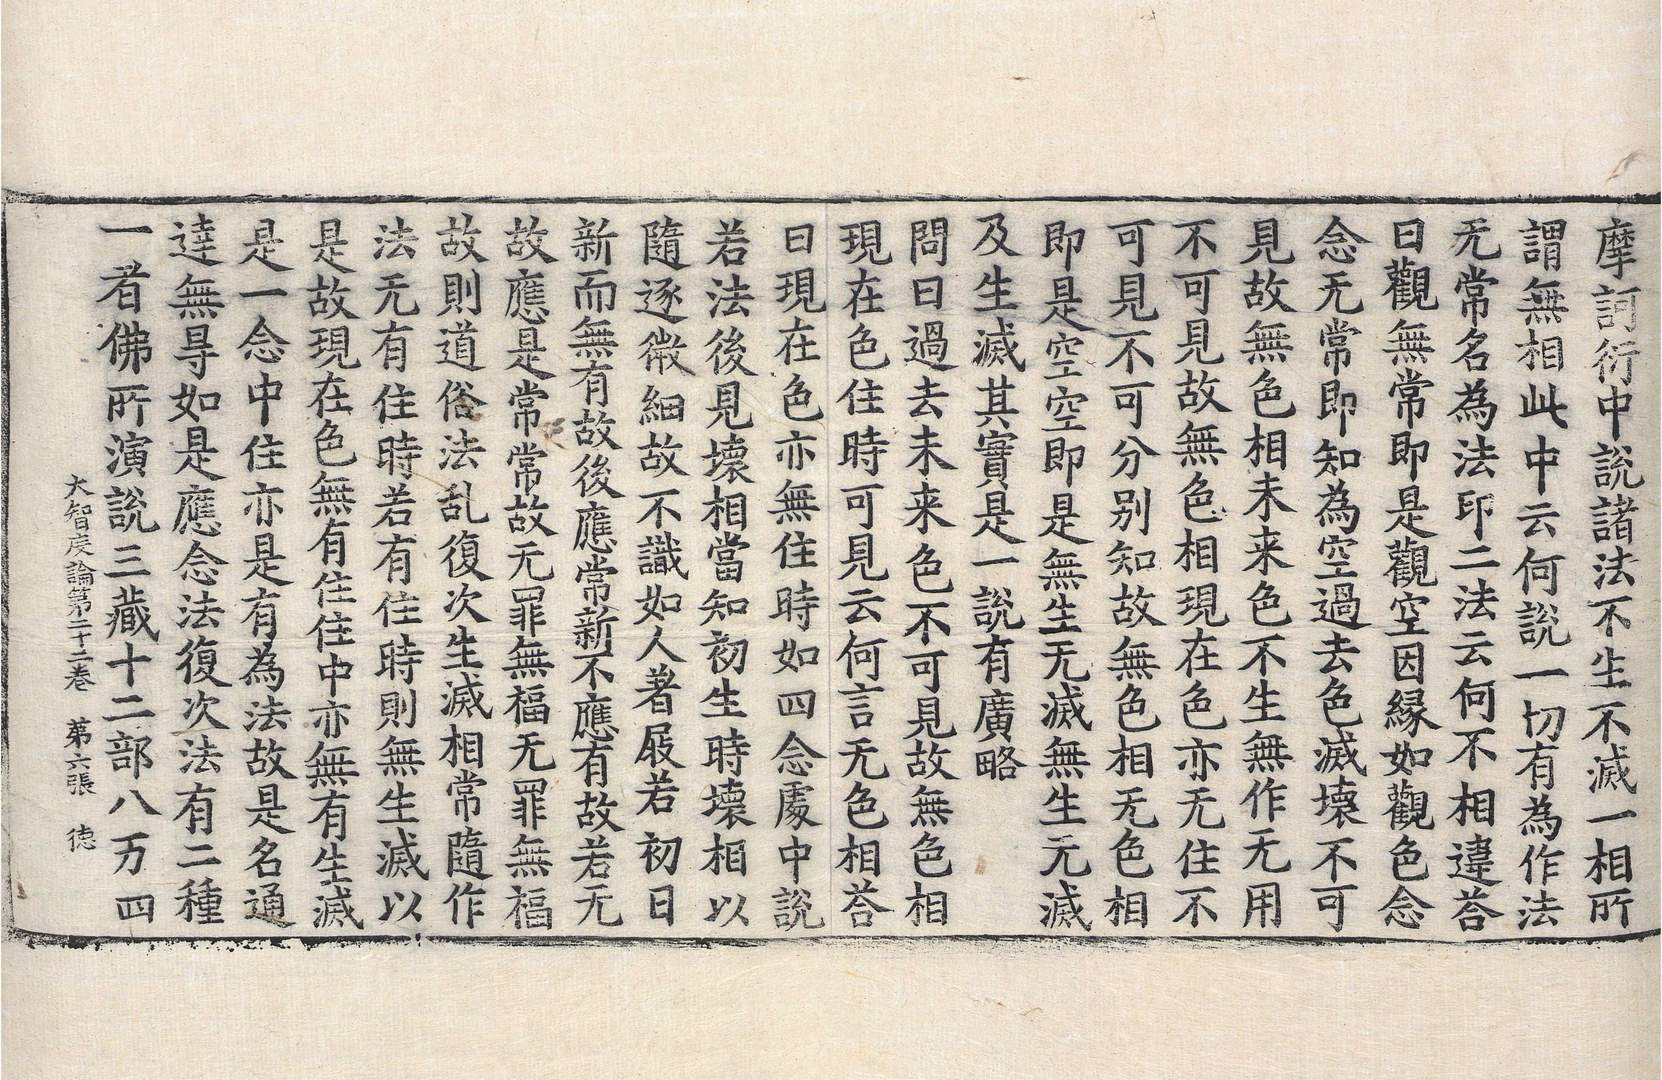 摩訶衍中說諸法不生不滅一相所
謂無相此中云何說一切有為作法
无常名為法印二法云何不相違荅
曰觀無常即是觀空因緣如觀色念
念无常即知為空過去色滅壞不可
見故無色相未来色不生無作无用
不可見故無色相現在色亦无住不
可見不可分別知故無色相无色相
即是空空即是無生无滅無生无滅
及生滅其實是一說有廣略
問曰過去未来色不可見故無色相
現在色住時可見云何言无色相荅
曰現在色亦無住時如四念處中說
若法後見壞相當知初生時壞相以
隨逐微細故不識如人著屐若初日
新而無有故後應常新不應有故若无
故應是常常故无罪無福无罪無福
故則道俗法乱復次生滅相常隨作
法无有住時若有住時則無生滅以
是故現在色無有住住中亦無有生滅
是一念中住亦是有為法故是名通
達無㝵如是應念法復次法有二種
一者佛所演說三藏十二部八万四
大智度論第二十二卷 第六張 德